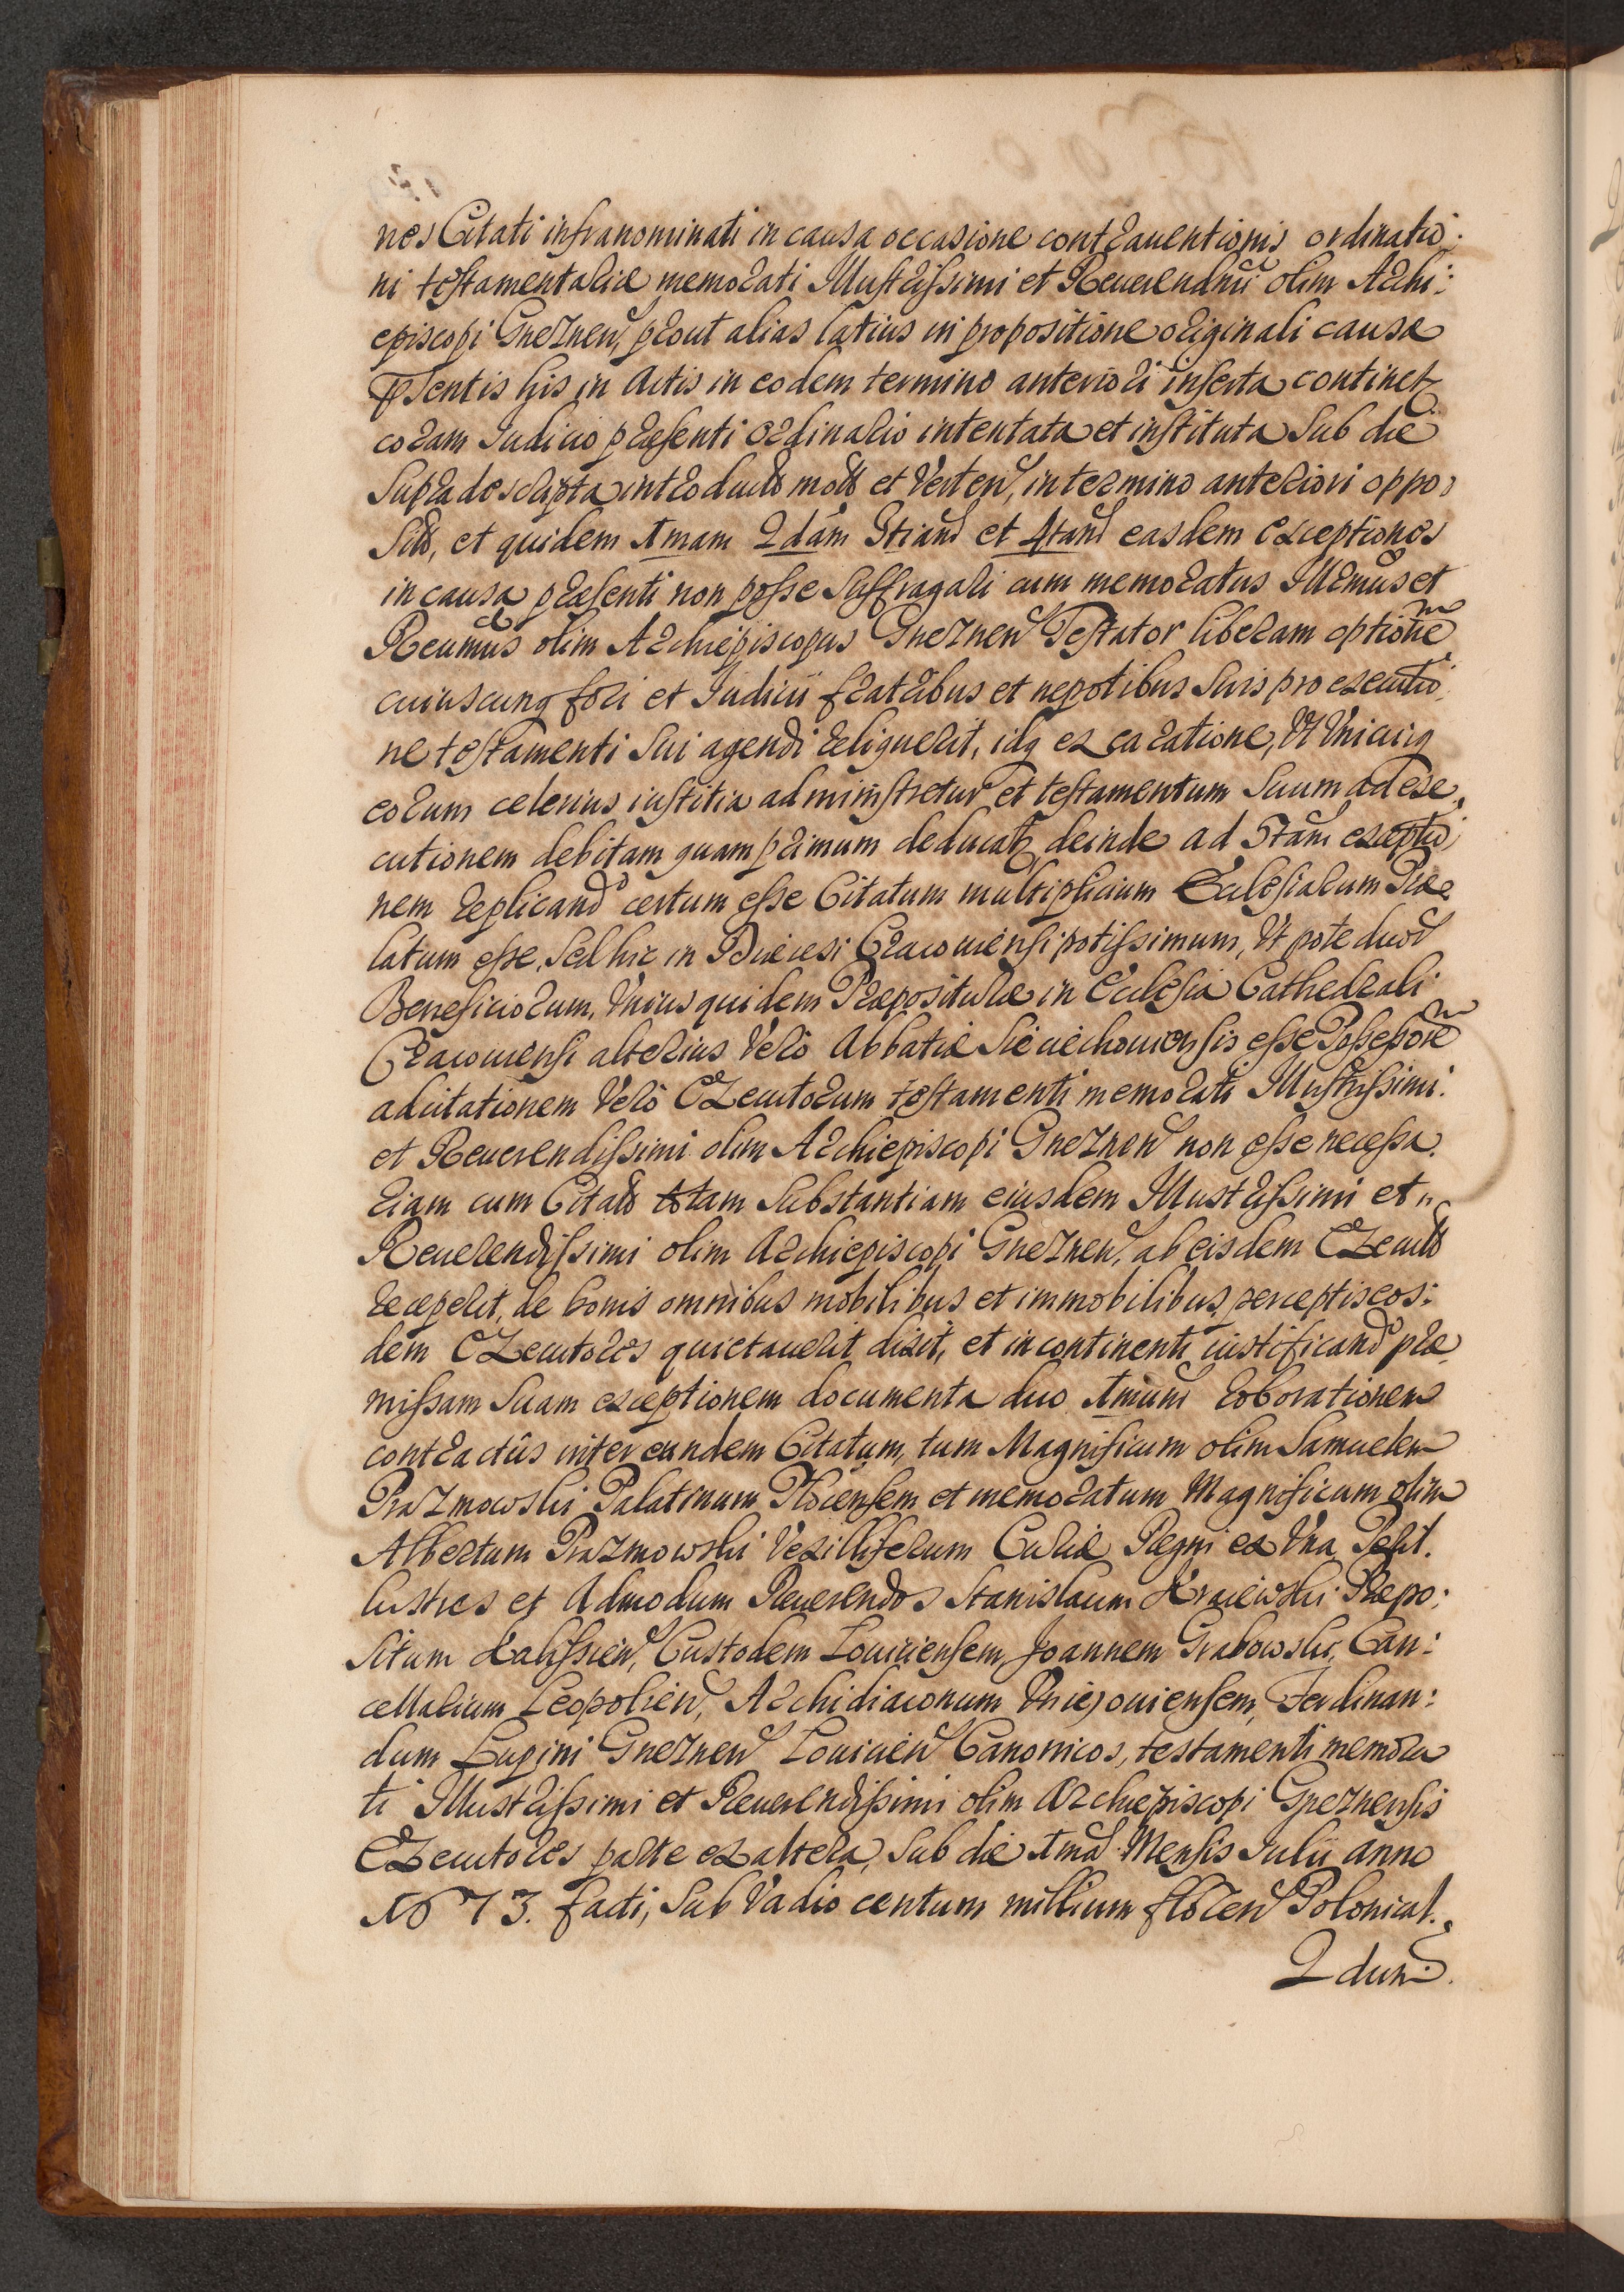 nes Citati infranominati in causa occasione contrauentionis ordinatio:
ni testamentariæ memorati Illustrissimi et Reuerendmi olim Archi:
episcopi Gneznen, prout alias latius in propositione originali causæ
præsentis his in Actis in eodem termino anteriori inserta continetr
coram Iudicio præsenti Ordinario intentata et instituta Sub die
Supradescripta introducto moto et Verten, in termino anteriori oppo,
sito, et quidem 1mam 2dam 3tiam et 4tam easdem exceptiones
in causa præsenti non posse Suffragari cum memoratus Illrmus et
Reumus olim Archiepiscopus Gneznen Testator liberam optione
cuiuscunq fori et Iudicii fratribus et nepotibus Suis pro executio
ne testamenti Sui agendi reliquerit, idq ex ea ratione, Vt Vnicuiq
eorum celerius iustitia administretur et testamentum Suum ad exe
cutionem debitam quam primum deducatr deinde ad 5tam exceptio
nem replicand certum esse Citatum multiplicium Ecclesiarum Præ
latum esse, Sed hic in Diæcesi Cracouiensi potissimum, Vt pote duor
Beneficiorum, Vnius quidem Præpositure in Ecclesia Cathedrali
Cracouiensi alterius Verò Abbatiæ Sieciechouiensis esse Possessore
ad citationem Verò Executorum testamenti memorati Illustrissimi
et Reuerendissimi olim Archiepiscopi Gneznen non esse necessa
riam cum Citato totam Substantiam eiusdem Illustrissimi et
Reuerendissimi olim Archiepiscopi Gneznen, ab eisdem Executo
receperit, de bonis omnibus mobilibus et immobilibus perceptis eos:
dem Executores quietauerit dixit, et in continenti iustificand præ
missam Suam exceptionem documenta duo 1mum roborationem
contractûs inter eundem Citatum, tum Magnificum olim Samuelem
Prazmowski Palatinum Plocensem et memoratum Magnificum olim
Albertum Prazmowski Vexilliferum Curiæ Regni ex Vna Perit.
lustres et Admodum Reuerendos Stanislaum Kraiewski Præpo:
situm Kalissien, Custodem Louiciensem, Joannem Grabowski, Can:
cellarium Leopolien, Archidiaconum Vnieiouiensem, Ferdinan:
dum Lupini Gneznen Louicien Canonicos, testamenti memora
ti Illustrissimi et Reuerendissimi olim Archiepiscopi Gneznensis
Executores parte ex altera, Sub die 1ma Mensis Iulii anno
1673. facti, Sub Vadio centum millium floren Polonical.
2dum